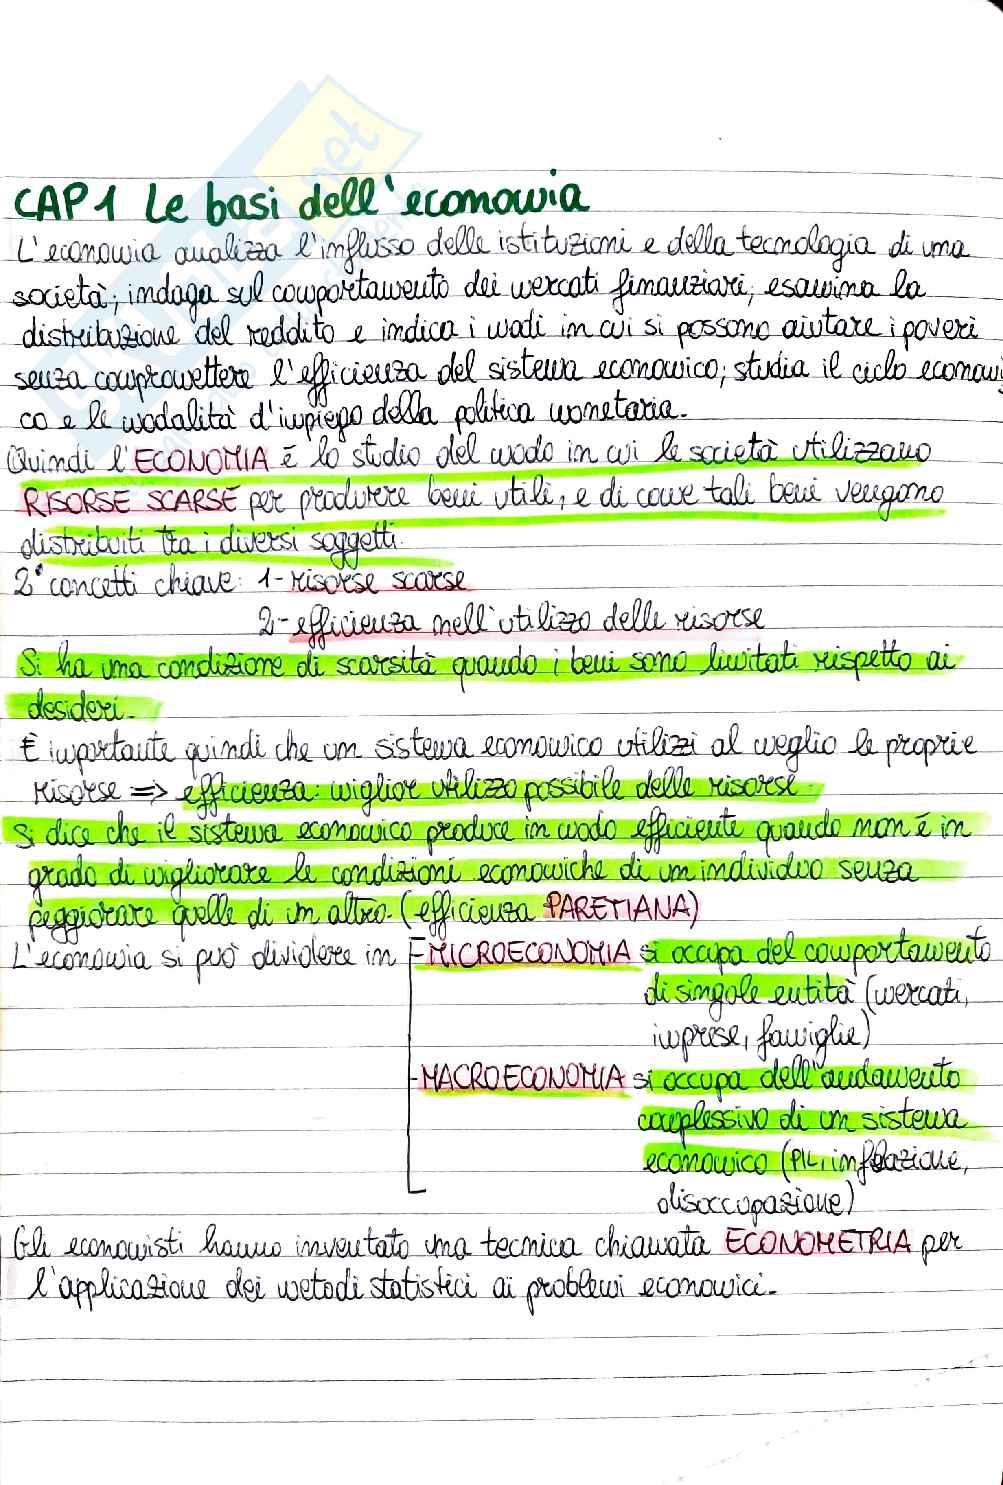 CAP 1 Le basi dell'economia
L'economia analizza l'influsso delle istituzioni e della tecnologia di una
società; indaga sul comportamento dei mercati finanziari; esamina la
distribuzione del reddito e indica i modi in cui si possono aiutare i poveri
senza compromettere l'efficienza del sistema economico; studia il ciclo economi
co e le modalità d'impiego della politica monetaria.
Quindi l'ECONOMIA è lo studio del modo in cui le società utilizzano
RISORSE SCARSE per produrre beni utili, e di come tali beni vengono
distribuiti tra i diversi soggetti.
2 concetti chiave: 1- risorse scarse
2- efficienza nell'utilizzo delle risorse
Si ha una condizione di scarsità quando i beni sono limitati rispetto ai
desideri.
È importante quindi che un sistema economico utilizzi al meglio le proprie
risorse => efficienza: miglior utilizzo possibile delle risorse.
Si dice che il sistema economico produce in modo efficiente quando non è in
grado di migliorare le condizioni economiche di un individuo senza
peggiorare quelle di un altro. (efficienza PARETIANA)
L'economia si può dividere in - MICROECONOMIA si occupa del comportamento
di singole entità (mercati,
imprese, famiglie)
- MACROECONOMIA si occupa dell'andamento
complessivo di un sistema
economico (PIL, inflazione,
disoccupazione)
Gli economisti hanno inventato una tecnica chiamata ECONOMETRIA per
l'applicazione dei metodi statistici ai problemi economici.